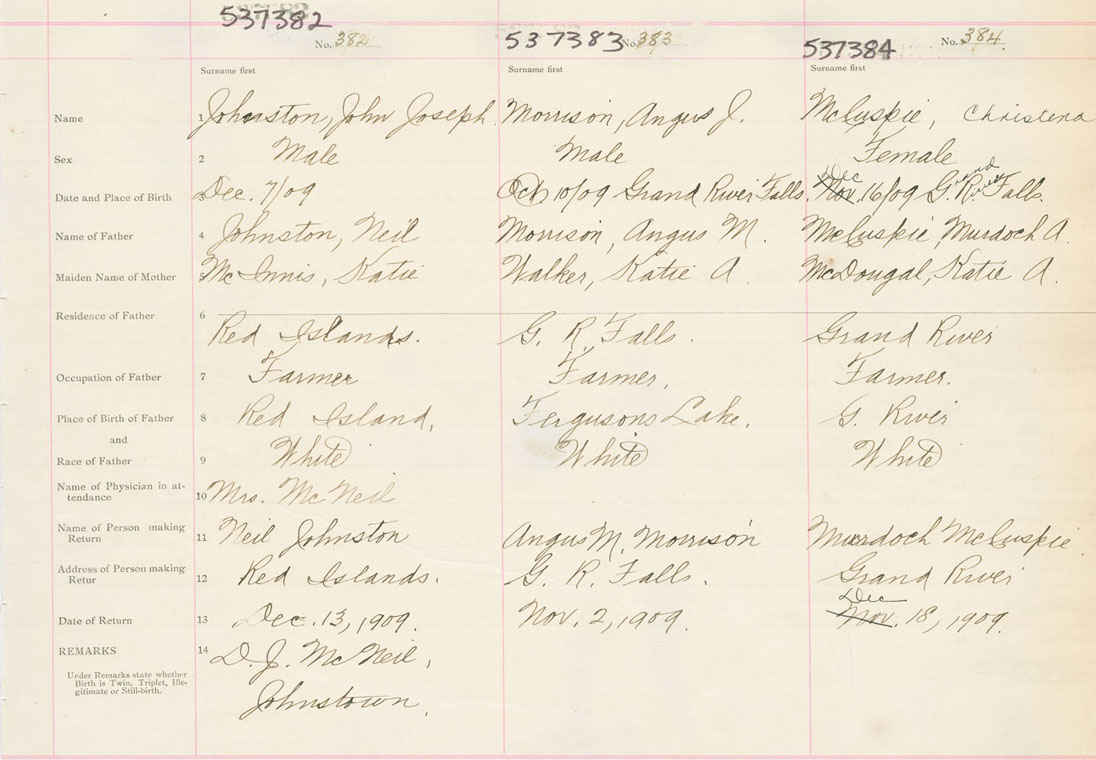 537382 No. 382 537383 No. 383 537384 No. 384.
Surname first Surname first Surname first
Name 1 Johnston, John Joseph. Morrison, Angus J. McCuspie, Christena
Sex 2 Male Male Female
Date and Place of Birth 3 Dec. 7/09 Oct 10/09 Grand River Falls. Nov. Dec 16/09 G. rand River Falls.
Name of Father 4 Johnston, Neil Morrison, Angus M. McCuspie, Murdoch A.
Maiden Name of Mother 5 McInnis, Katie Walker, Katie A. McDougal, Katie A.
Residence of Father 6
Red Islands. G. R. Falls. Grand River
Occupation of Father 7 Farmer Farmer, Farmer.
Place of Birth of Father 8 Red Island, Fergusons Lake. G. River
and
Race of Father 9 White White White
Name of Physician in at-
tendance 10 Mrs. McNeil
Name of Person making
Return 11 Neil Johnston Angus M. Morrison Murdoch McCuspie.
Address of Person making
Retur 12 Red Islands. G. R. Falls. Grand River
Date of Return 13 Dec. 13, 1909. Nov. 2, 1909. Nov. Dec 18, 1909.
REMARKS 14 D. J. McNeil,
Under Remarks state whether
Birth is Twin, Triplet, Ille-
gitimate or Still-birth.
Johnstown.